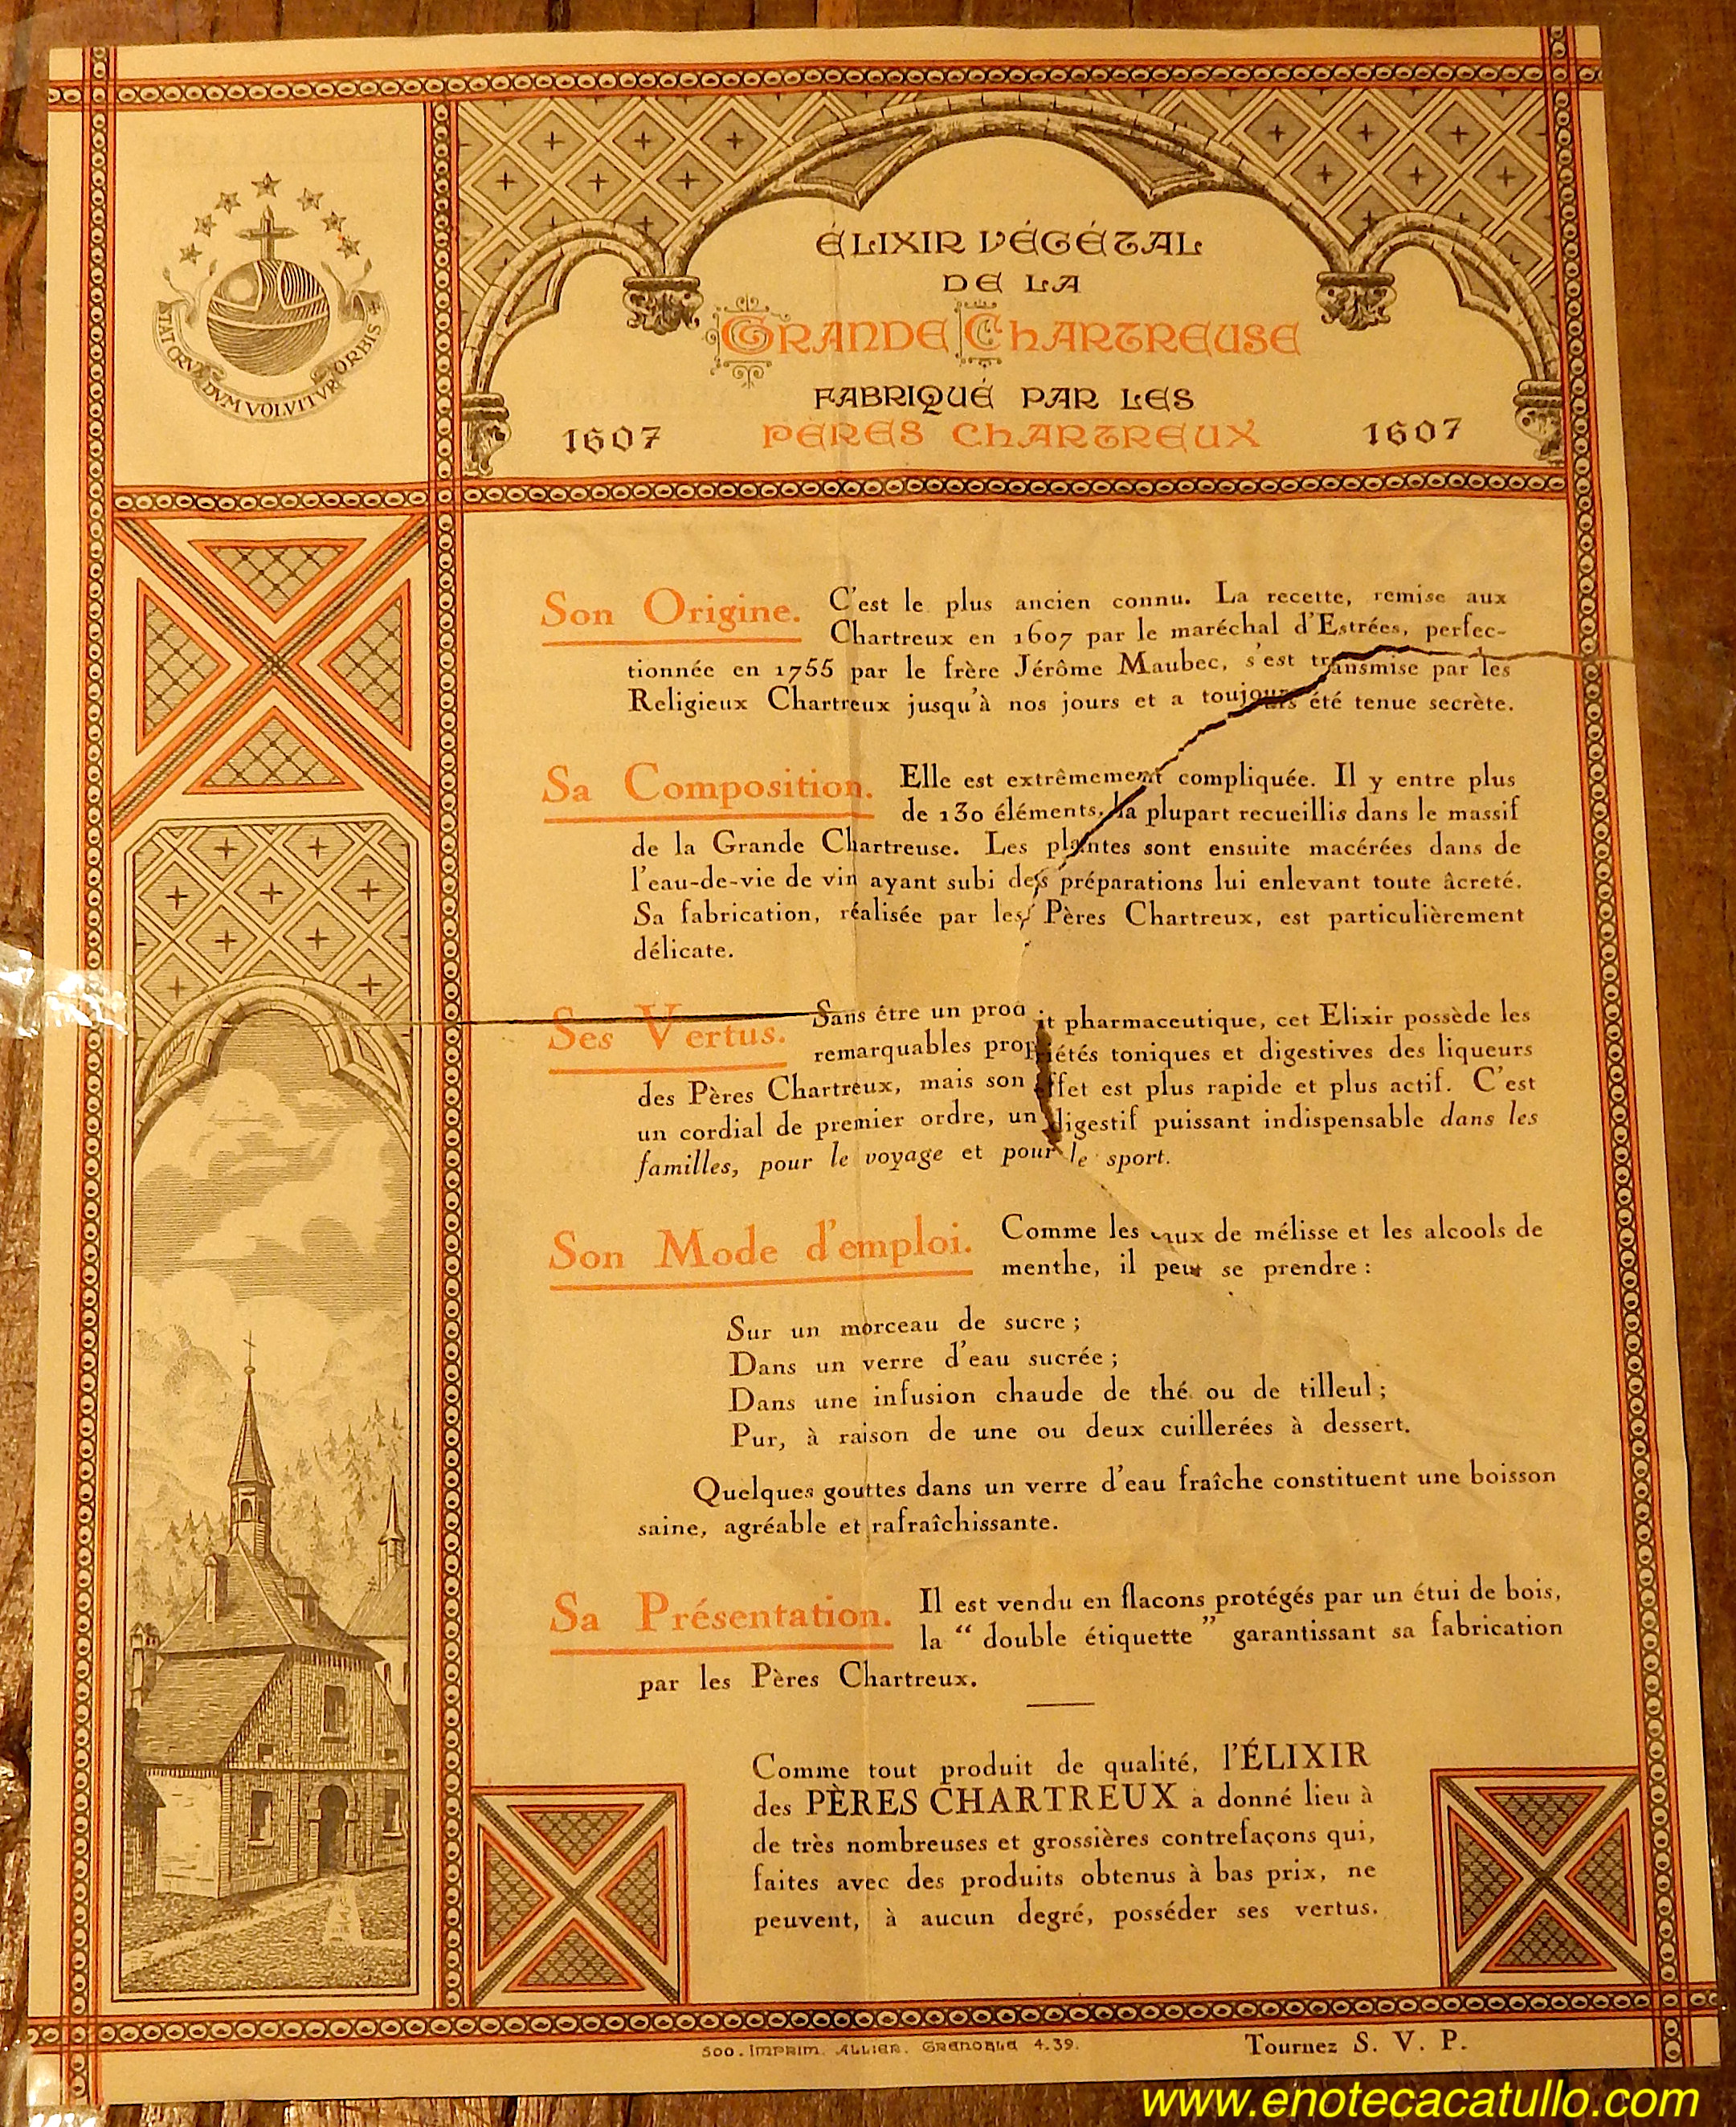 STAT CRVX DVM VOLVITVR ORBIS
ÉLIXIR VÉGÉTAL
DE LA
GRANDE CHARTREUSE
FABRIQUÉ PAR LES
1607 PÈRES CHARTREUX 1607
Son Origine. C'est le plus ancien connu. La recette, remise aux
Chartreux en 1607 par le maréchal d'Estrées, perfec-
tionnée en 1755 par le frère Jérôme Maubec, s'est transmise par les
Religieux Chartreux jusqu'à nos jours et a toujours été tenue secrète.
Sa Composition. Elle est extrêmement compliquée. Il y entre plus
de 130 éléments, la plupart recueillis dans le massif
de la Grande Chartreuse. Les plantes sont ensuite macérées dans de
l'eau-de-vie de vin ayant subi des préparations lui enlevant toute âcreté.
Sa fabrication, réalisée par les Pères Chartreux, est particulièrement
délicate.
Ses Vertus. Sans être un produit pharmaceutique, cet Elixir possède les
remarquables propriétés toniques et digestives des liqueurs
des Pères Chartreux, mais son effet est plus rapide et plus actif. C'est
un cordial de premier ordre, un digestif puissant indispensable dans les
familles, pour le voyage et pour le sport.
Son Mode d'emploi. Comme les eaux de mélisse et les alcools de
menthe, il peut se prendre :
Sur un morceau de sucre ;
Dans un verre d'eau sucrée ;
Dans une infusion chaude de thé ou de tilleul ;
Pur, à raison de une ou deux cuillerées à dessert.
Quelques gouttes dans un verre d'eau fraîche constituent une boisson
saine, agréable et rafraîchissante.
Sa Présentation. Il est vendu en flacons protégés par un étui de bois,
la “ double étiquette ” garantissant sa fabrication
par les Pères Chartreux.
Comme tout produit de qualité, l'ÉLIXIR
des PÈRES CHARTREUX a donné lieu à
de très nombreuses et grossières contrefaçons qui,
faites avec des produits obtenus à bas prix, ne
peuvent, à aucun degré, posséder ses vertus.
500. IMPRIM. ALLIER. GRENOBLE 4.39.
Tournez S. V. P.
www.enotecacatullo.com